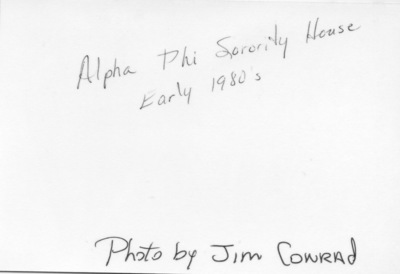 Alpha Phi Sorority House
Early 1980's
Photo by Jim Conrad